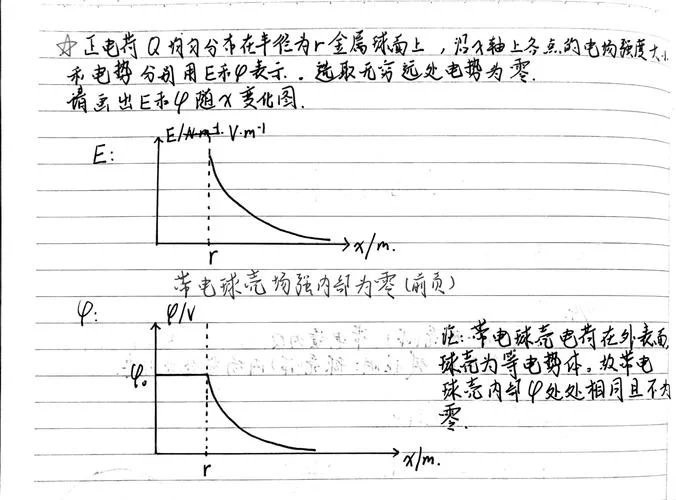 ☆正电荷Q均匀分布在半径为r金属球面上，沿x轴上各点的电场强度大小
和电势分别用E和φ表示。选取无穷远处电势为零.
请画出E和φ随x变化图.
E:
E/N·m⁻¹ V·m⁻¹
r
x/m.
带电球壳场强内部为零(前页)
φ:
φ/V
注: 带电球壳电荷在外表面
球壳为等电势体。故带电
球壳内部φ处处相同且不为
零.
φ₀
r
x/m.